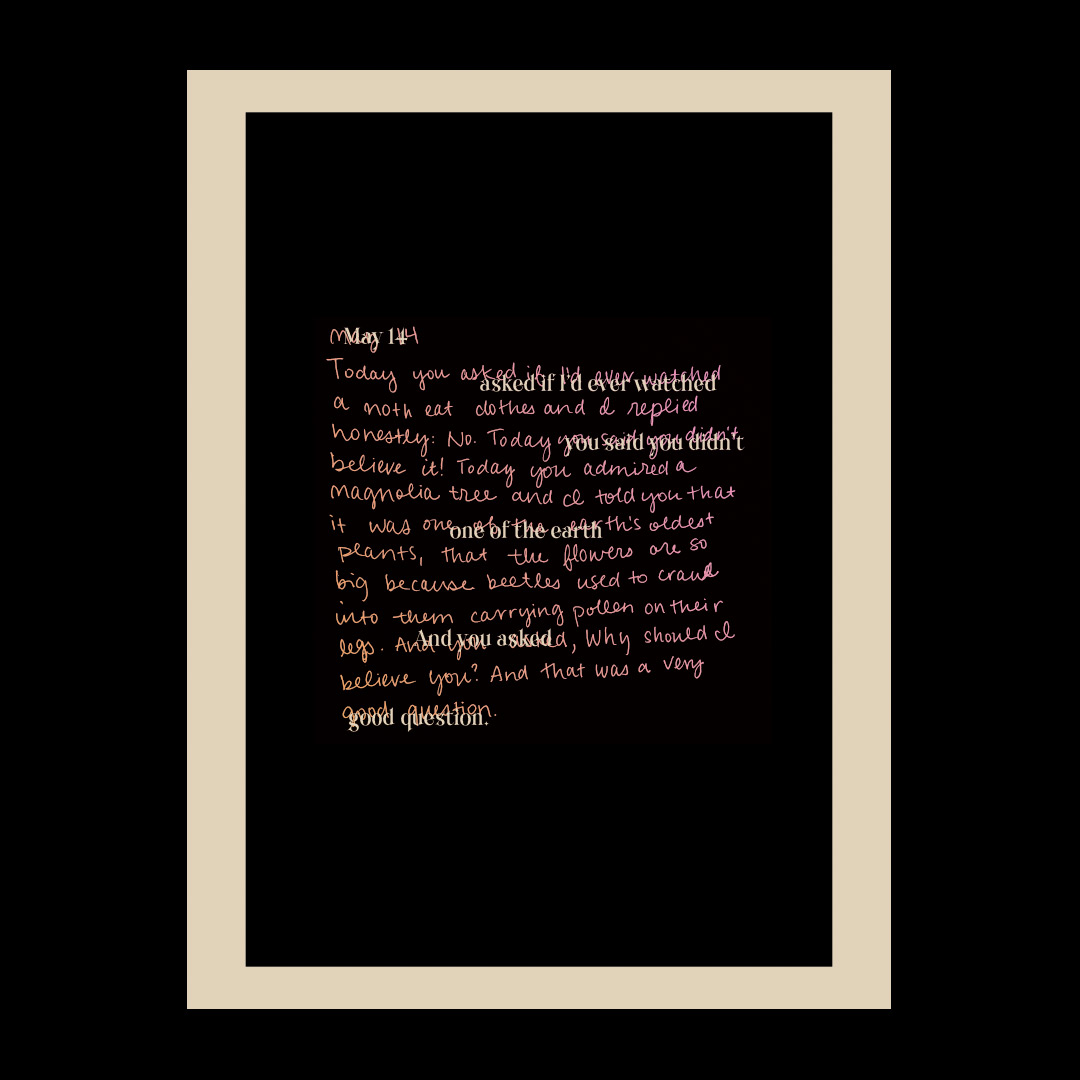 May 14
May 14
Today you asked if I'd ever watched
asked if I'd ever watched
a moth eat clothes and I replied
honestly: No. Today you said you didn't
you said you didn't
believe it! Today you admired a
magnolia tree and I told you that
it was one of the earth's oldest
one of the earth
plants, that the flowers are so
big because beetles used to crawl
into them carrying pollen on their
legs. And you asked, Why should I
And you asked
believe you? And that was a very
good question.
good question.